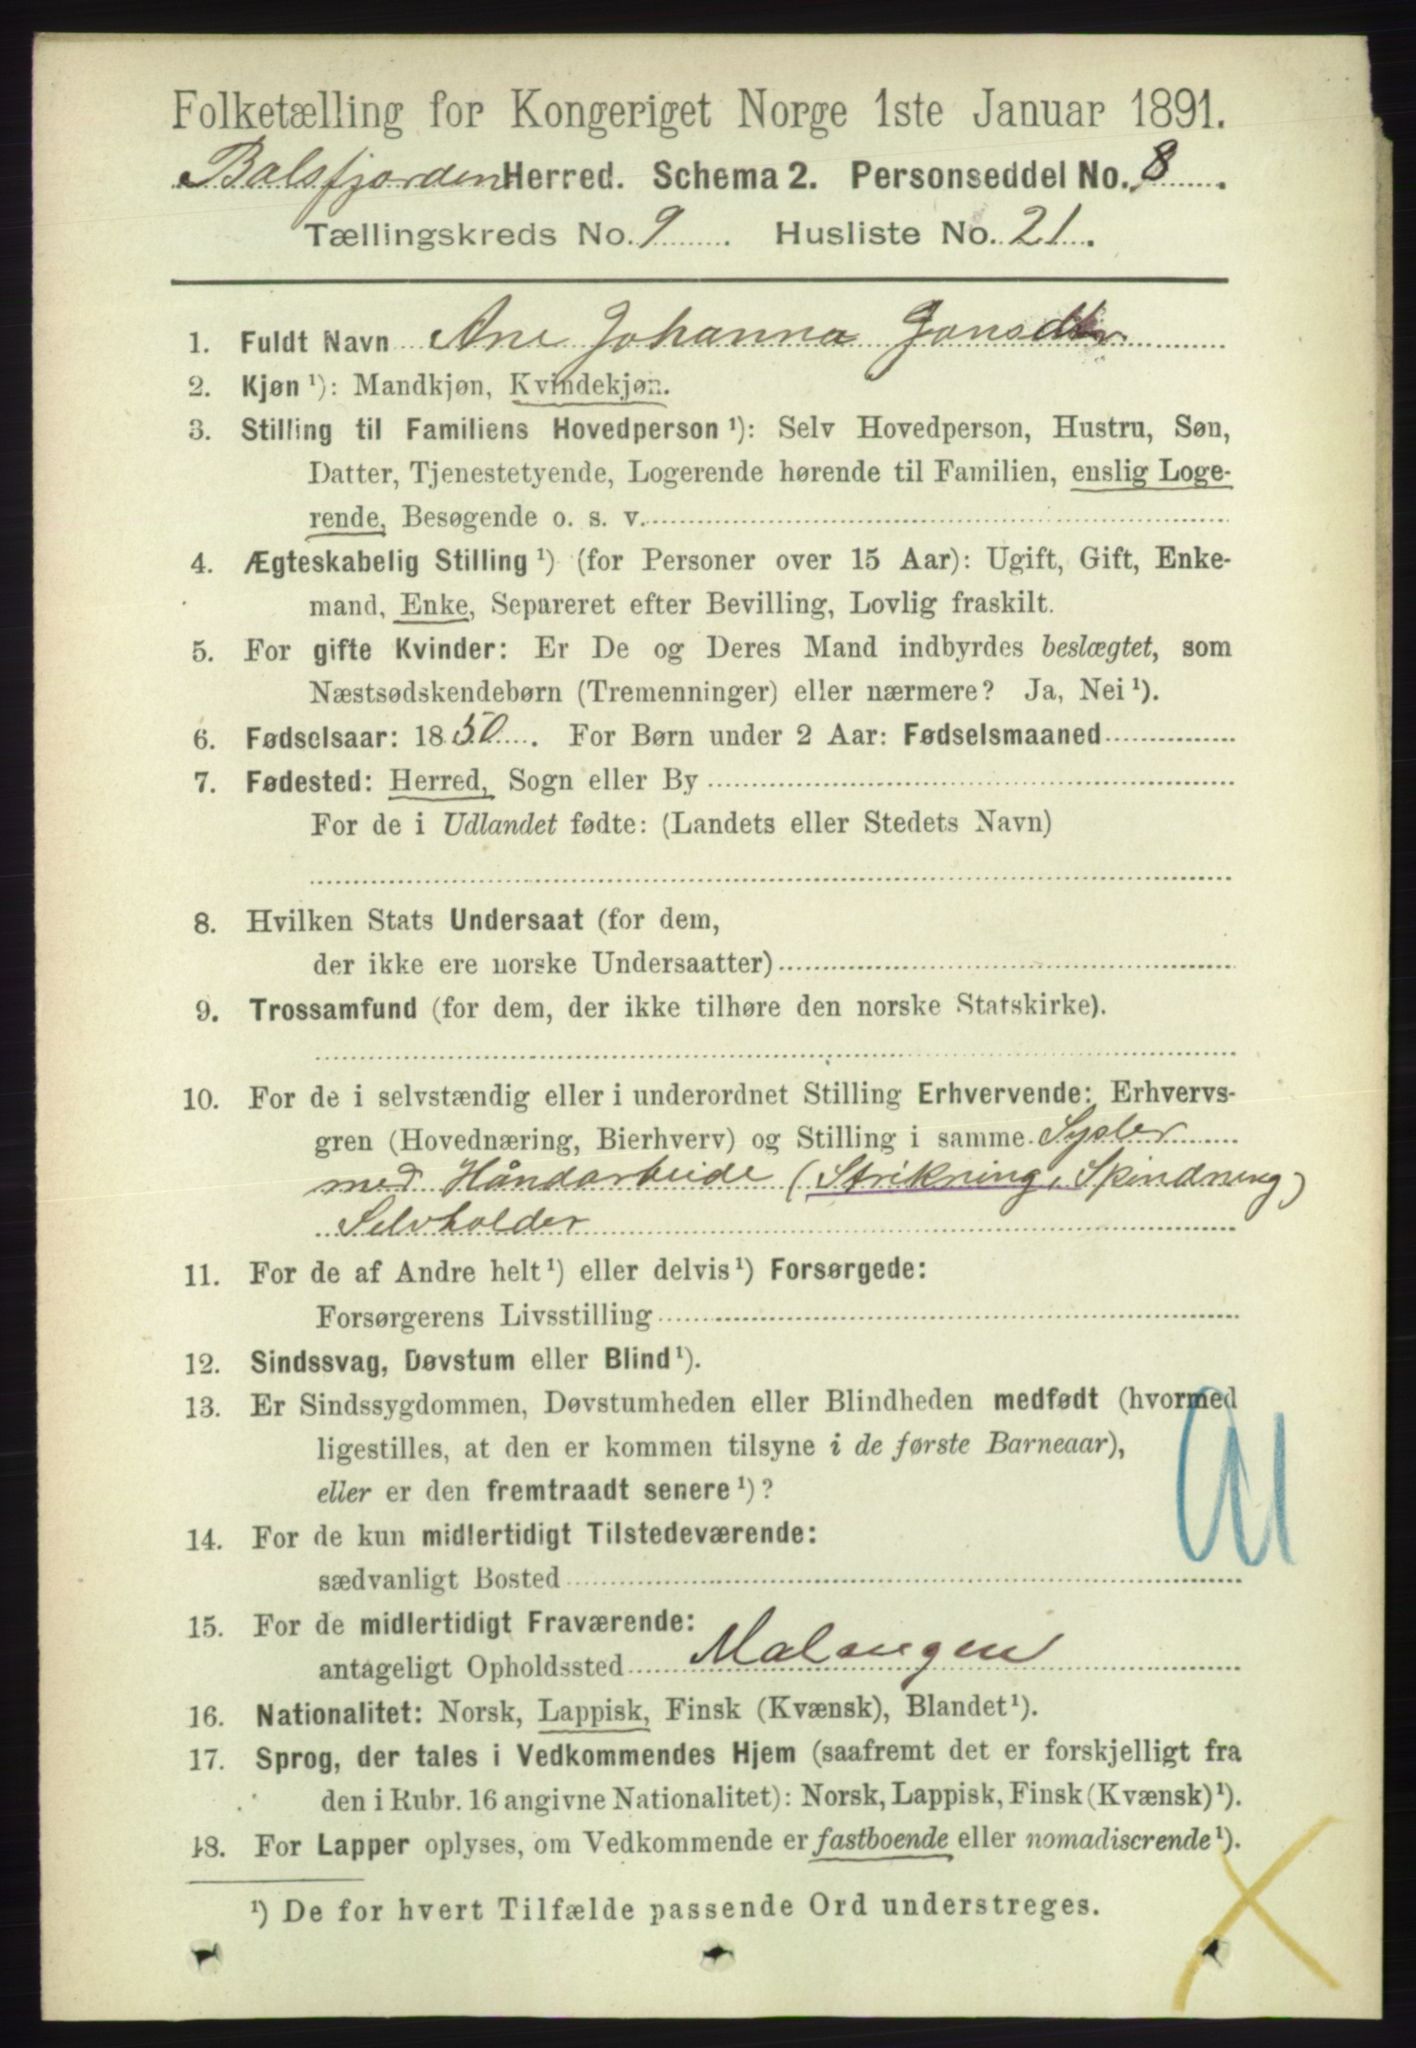 Folketælling for Kongeriget Norge 1ste Januar 1891.
Balsfjorden Herred. Schema 2. Personseddel No. 8.
Tællingskreds No. 9. Husliste No. 21.
1. Fuldt Navn Ane Johanna Jonsdtr
2. Kjøn ¹): Mandkjøn, Kvindekjøn.
3. Stilling til Familiens Hovedperson ¹): Selv Hovedperson, Hustru, Søn,
Datter, Tjenestetyende, Logerende hørende til Familien, enslig Loge-
rende, Besøgende o. s. v.
4. Ægteskabelig Stilling ¹) (for Personer over 15 Aar): Ugift, Gift, Enke-
mand, Enke, Separeret efter Bevilling, Lovlig fraskilt.
5. For gifte Kvinder: Er De og Deres Mand indbyrdes beslægtet, som
Næstsødskendebørn (Tremenninger) eller nærmere? Ja, Nei ¹).
6. Fødselsaar: 1850. For Børn under 2 Aar: Fødselsmaaned
7. Fødested: Herred, Sogn eller By
For de i Udlandet fødte: (Landets eller Stedets Navn)
8. Hvilken Stats Undersaat (for dem,
der ikke ere norske Undersaatter)
9. Trossamfund (for dem, der ikke tilhøre den norske Statskirke).
10. For de i selvstændig eller i underordnet Stilling Erhvervende: Erhvervs-
gren (Hovednæring, Bierhverv) og Stilling i samme Sysler
med Håndarbeide (Strikning, Spindning)
Selvholder
11. For de af Andre helt ¹) eller delvis ¹) Forsørgede:
Forsørgerens Livsstilling
12. Sindssvag, Døvstum eller Blind ¹).
13. Er Sindssygdommen, Døvstumheden eller Blindheden medfødt (hvormed
ligestilles, at den er kommen tilsyne i de første Barneaar),
eller er den fremtraadt senere ¹)?
14. For de kun midlertidigt Tilstedeværende:
sædvanligt Bosted
15. For de midlertidigt Fraværende:
antageligt Opholdssted Malangen
16. Nationalitet: Norsk, Lappisk, Finsk (Kvænsk), Blandet ¹).
17. Sprog, der tales i Vedkommendes Hjem (saafremt det er forskjelligt fra
den i Rubr. 16 angivne Nationalitet): Norsk, Lappisk, Finsk (Kvænsk) ¹).
18. For Lapper oplyses, om Vedkommende er fastboende eller nomadiserende ¹).
¹) De for hvert Tilfælde passende Ord understreges.